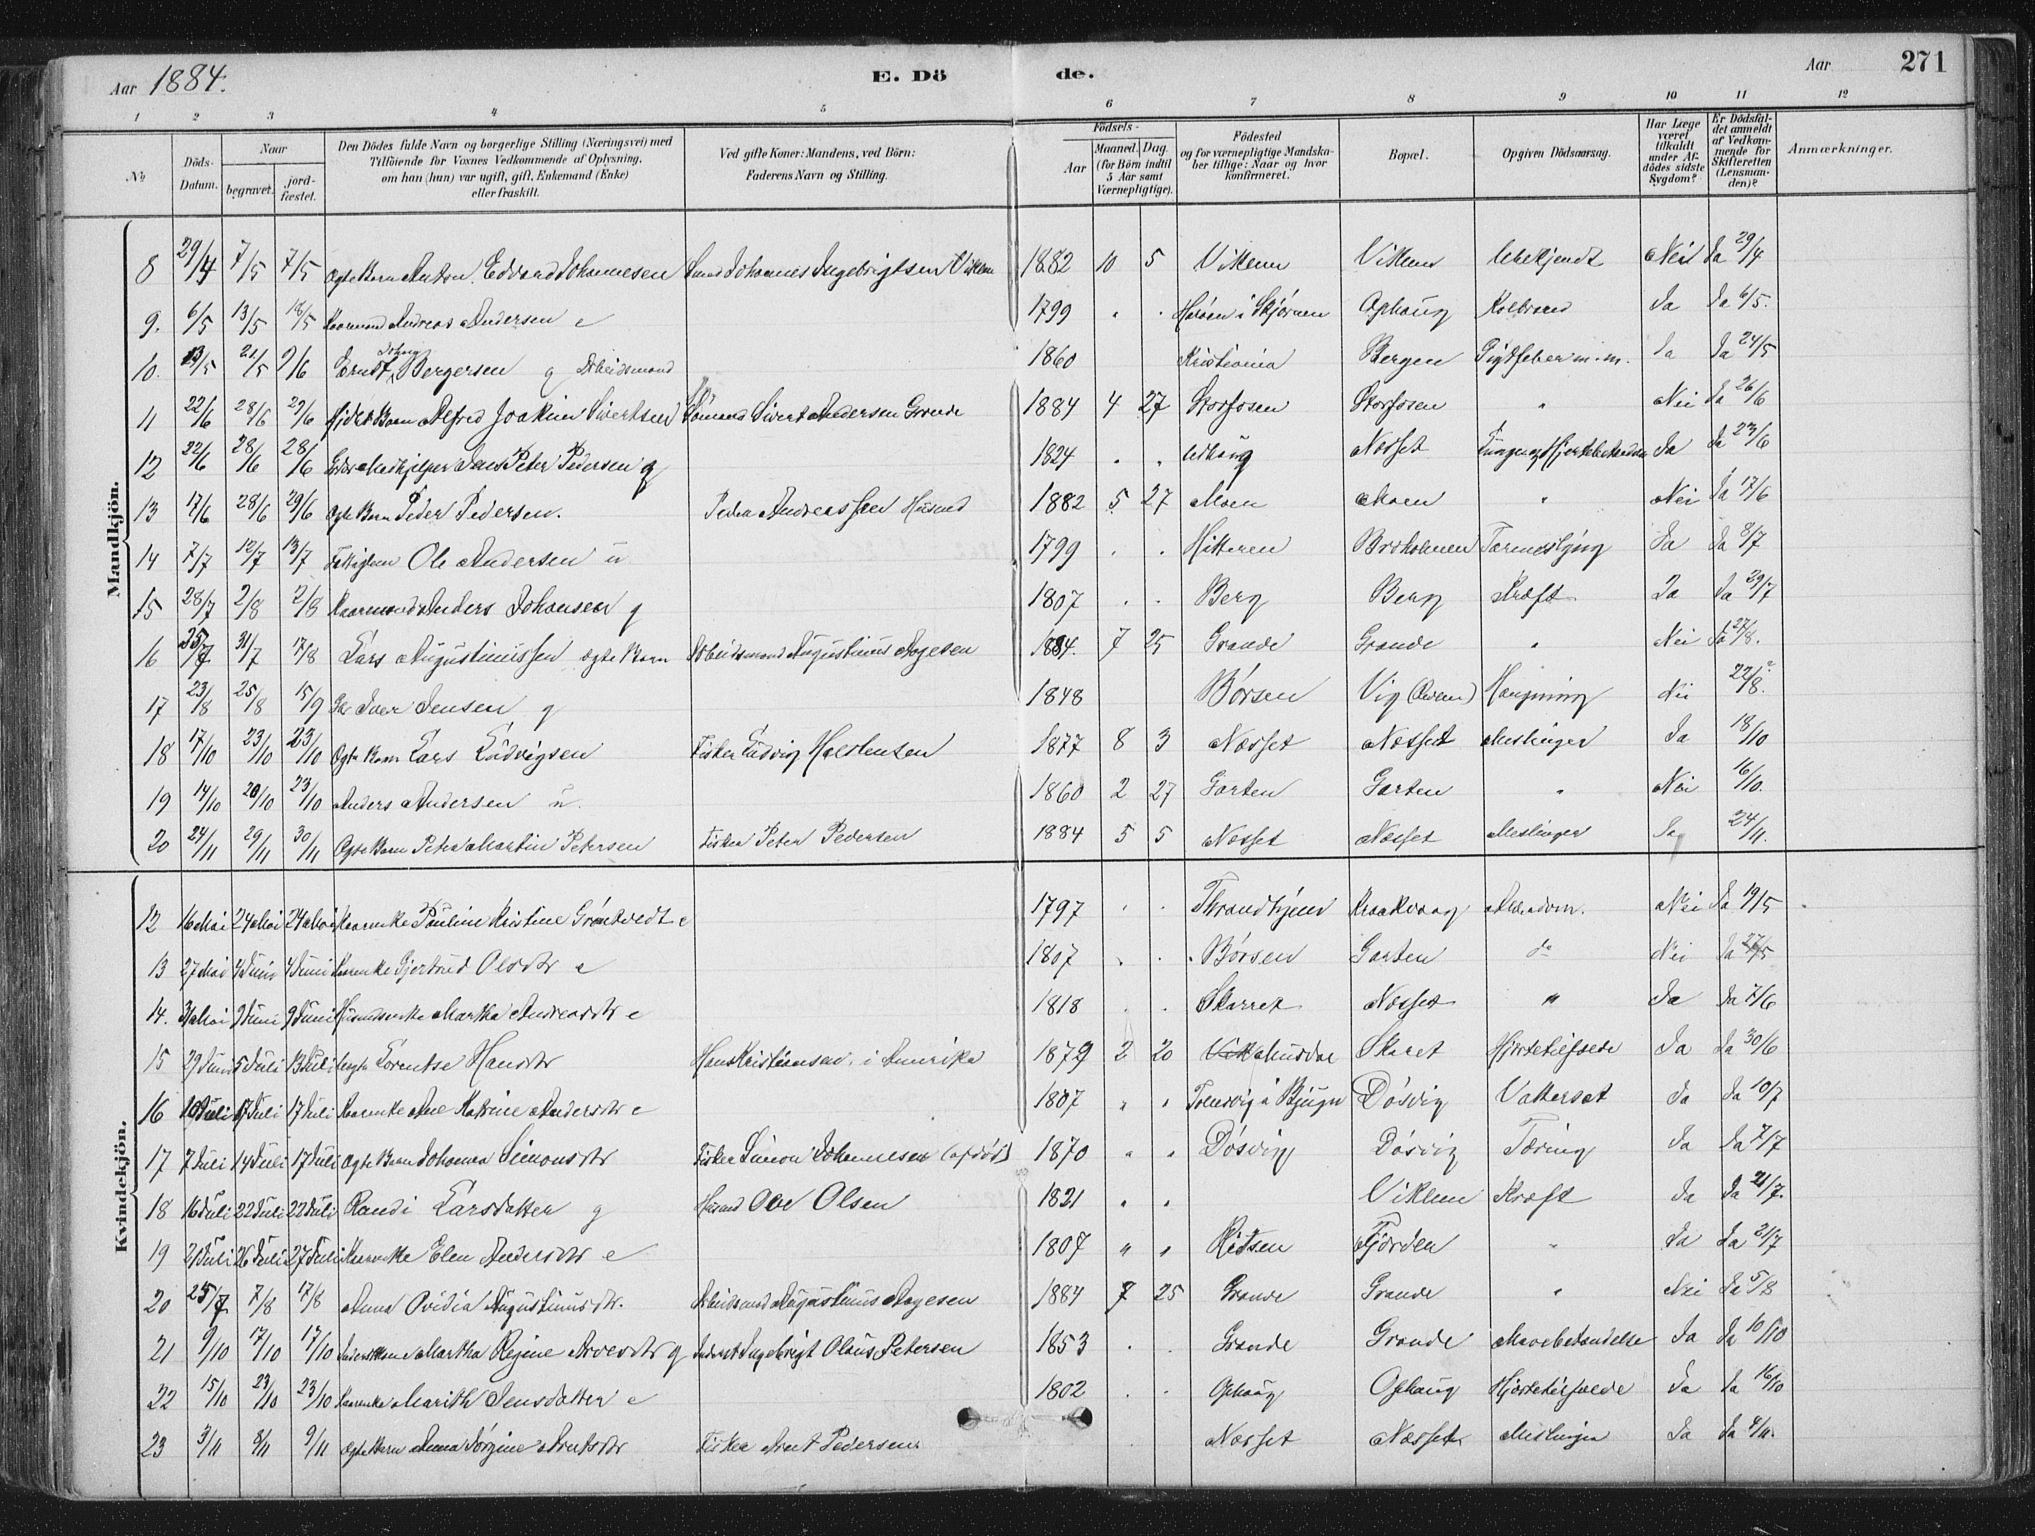 Aar 1884. E. Dö de. Aar 271
1 2 3 4 5 6 7 8 9 10 11 12
No.
Döds-Datum.
Naar
begravet.
jord-fæstet.
Den Dödes fulde Navn og borgerlige Stilling (Næringsvei) med
Tilföiende for Voxnes Vedkommende af Oplysning,
om han (hun) var ugift, gift, Enkemand (Enke)
eller fraskilt.
Ved gifte Koner: Mandens, ved Börn:
Faderens Navn og Stilling.
Födsels-
Aar
Maaned. Dag.
(for Börn indtil
5 Aar samt
Værnepligtige).
Födested
og for værnepligtige Mandska-
ber tillige: Naar og hvor
konfirmeret.
Bopæl.
Opgiven Dödsaarsag.
Har Læge
været
tilkaldt
under Af-
dödes sidste
Sygdom?
Er Dödsfal-
det anmeldt
af Vedkom-
mende for
Skifteretten
(Lensman-
den)?
Anmærkninger.
Mandkjön.
8 29/4 7/5 7/5 Ægte Barn Anton Edvard Johannesen Johannes Ingebrigtsen Viklem 1882 10 5 Viklem Viklem Ubekjendt Nei Ja 29/4
9. 6/5 13/5 18/5 Kaarmand Andreas Andersen e 1799 " " i Skjörnen Ophaug Koldbrand Ja Ja 6/5.
10. 13/5 21/5 2/6 Ernst Johan Bergersen g Arbeidsmand 1860 Kristiania Bergen Gigtfeber m.m. Ja Ja 24/5
11 22/6 28/6 29/6 Barn Alfred Joakim Sivertsen Sivert Andersen Grande 1884 4 27 Storfosen Storfosen " Nei Ja 26/6
12 22/6 28/6 28/6 Jens Peter Pedersen g 1824 " " Udhaug Næsset Ja Ja 23/6
13 17/6 28/6 29/6 Ægte Barn Peder Pedersen. Peder Andreassen Husmd 1882 5 27 Moen Moen " Nei Ja 17/6
14 7/7 12/7 13/7 Ole Andersen u 1799 . . Hitteren Brekholmen Ja Ja 8/7
15 28/7 2/8 2/8 Kaarmand Anders Johansen g 1807 . . Berg Berg Kræft Ja Ja 29/7
16 25/7 31/7 17/8 Lars Augustinussen Ægte Barn Arbeidsmand Augustinus Aagesen 1884. 7 25 Grande Grande " Nei Ja 27/8.
17 23/8 25/8 15/9 Iver Jensen g 1848 Børsen Vig Hængning Nei 22/8.
18 17/10 23/10 23/10 Ægte Barn Lars Ludvigsen Fisker Ludvig Halstensen 1877 8 3 Næsset Næsset Meslinger Ja 18/10
19 14/10 20/10 23/10 Anders Andersen u. 1860 2 27 Garten Garten " Nei 16/10.
20 24/11 29/11 30/11 Ægte Barn Peter Martin Petersen Fisker Peter Pedersen 1884 5 5 Næsset Næsset Meslinger Ja 24/11.
Kvindekjön.
12 16 Mai 24 Mai 24 Mai Kaarenke Pauline Kristine Grøntvedt e 1797 . . Thrandhjem Kraakvaag Alderdom. Nei Ja 19/5
13 27 Mai 4 Juni 4 Juni Kaarenke Gjertrud Olsdtr e 1807 . . Børsen Garten do Nei Ja 27/5
14. 31 Mai 9 Juni 9 Juni Husmdsenke Martha Andreasdtr e 1818 . . Skarret Næsset " Ja Ja 7/6
15 29 Juni 5 Juli 13 Juli Ægte Lorentse Hansdtr Hans Kristiansen i Amerika 1879 2 20 Skaret Hjertetilfælde Ja Ja 30/6
16 10 Juli 17 Juli 17 Juli Kaarenke Ane Katrine Andersdtr e 1807 " " i Bjugn Døsvig Vattersot Ja Ja 10/7
17 7 Juli 14 Juli 17 Juli Ægte Barn Johanna Simonsdtr Fisker Simon Johannesen (afdød) 1870 " " Døsvig Døsvig Tæring Ja Ja 7/7
18 16 Juli 22 Juli 22 Juli Randi Larsdatter g Husmd Ole Olsen 1821 " " Viklem Kræft Ja Ja 21/7.
19 21 Juli 26 Juli 27 Juli Kaarenke Elen Andersdtr e 1807 " " Ridsen Fjorden " Ja Ja 21/7
20 25/7 7/8 17/8 Anna Ovidia Augustinusdtr. Arbeidsmand Augustinus Aagesen 1884 7 25 Grande Grande " Nei Ja 5/8
21 9/10 17/10 17/10 Martha Regine g Ingebrigt Olaus Petersen 1853 . . Grande Grande Mavebetændelse Ja Ja 10/10
22 15/10 23/10 23/10 Kaarenke Marith Jensdatter e 1802 . . Ophaug Ophaug Hjertetilfælde Ja Ja 16/10
23 3/11 8/11 9/11 Ægte Barn Anna Jørgine Arntsdtr Fisker Arnt Pedersen Næsset Næsset Meslinger Ja Ja 4/11.